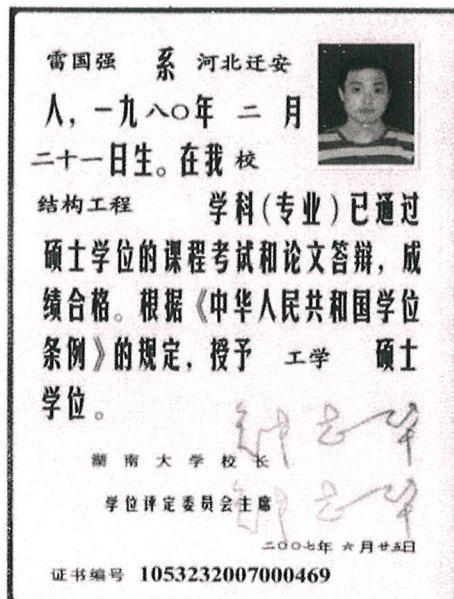 雷国强 系 河北迁安
人，一九八〇年 二 月
二十一日生。在我 校
结构工程 学科(专业)已通过
硕士学位的课程考试和论文答辩，成
绩合格。根据《中华人民共和国学位
条例》的规定，授予 工学 硕士
学位。
钟志华
湖南大学校长
钟志华
学位评定委员会主席
二〇〇七年 六 月 廿五日
证书编号 1053232007000469